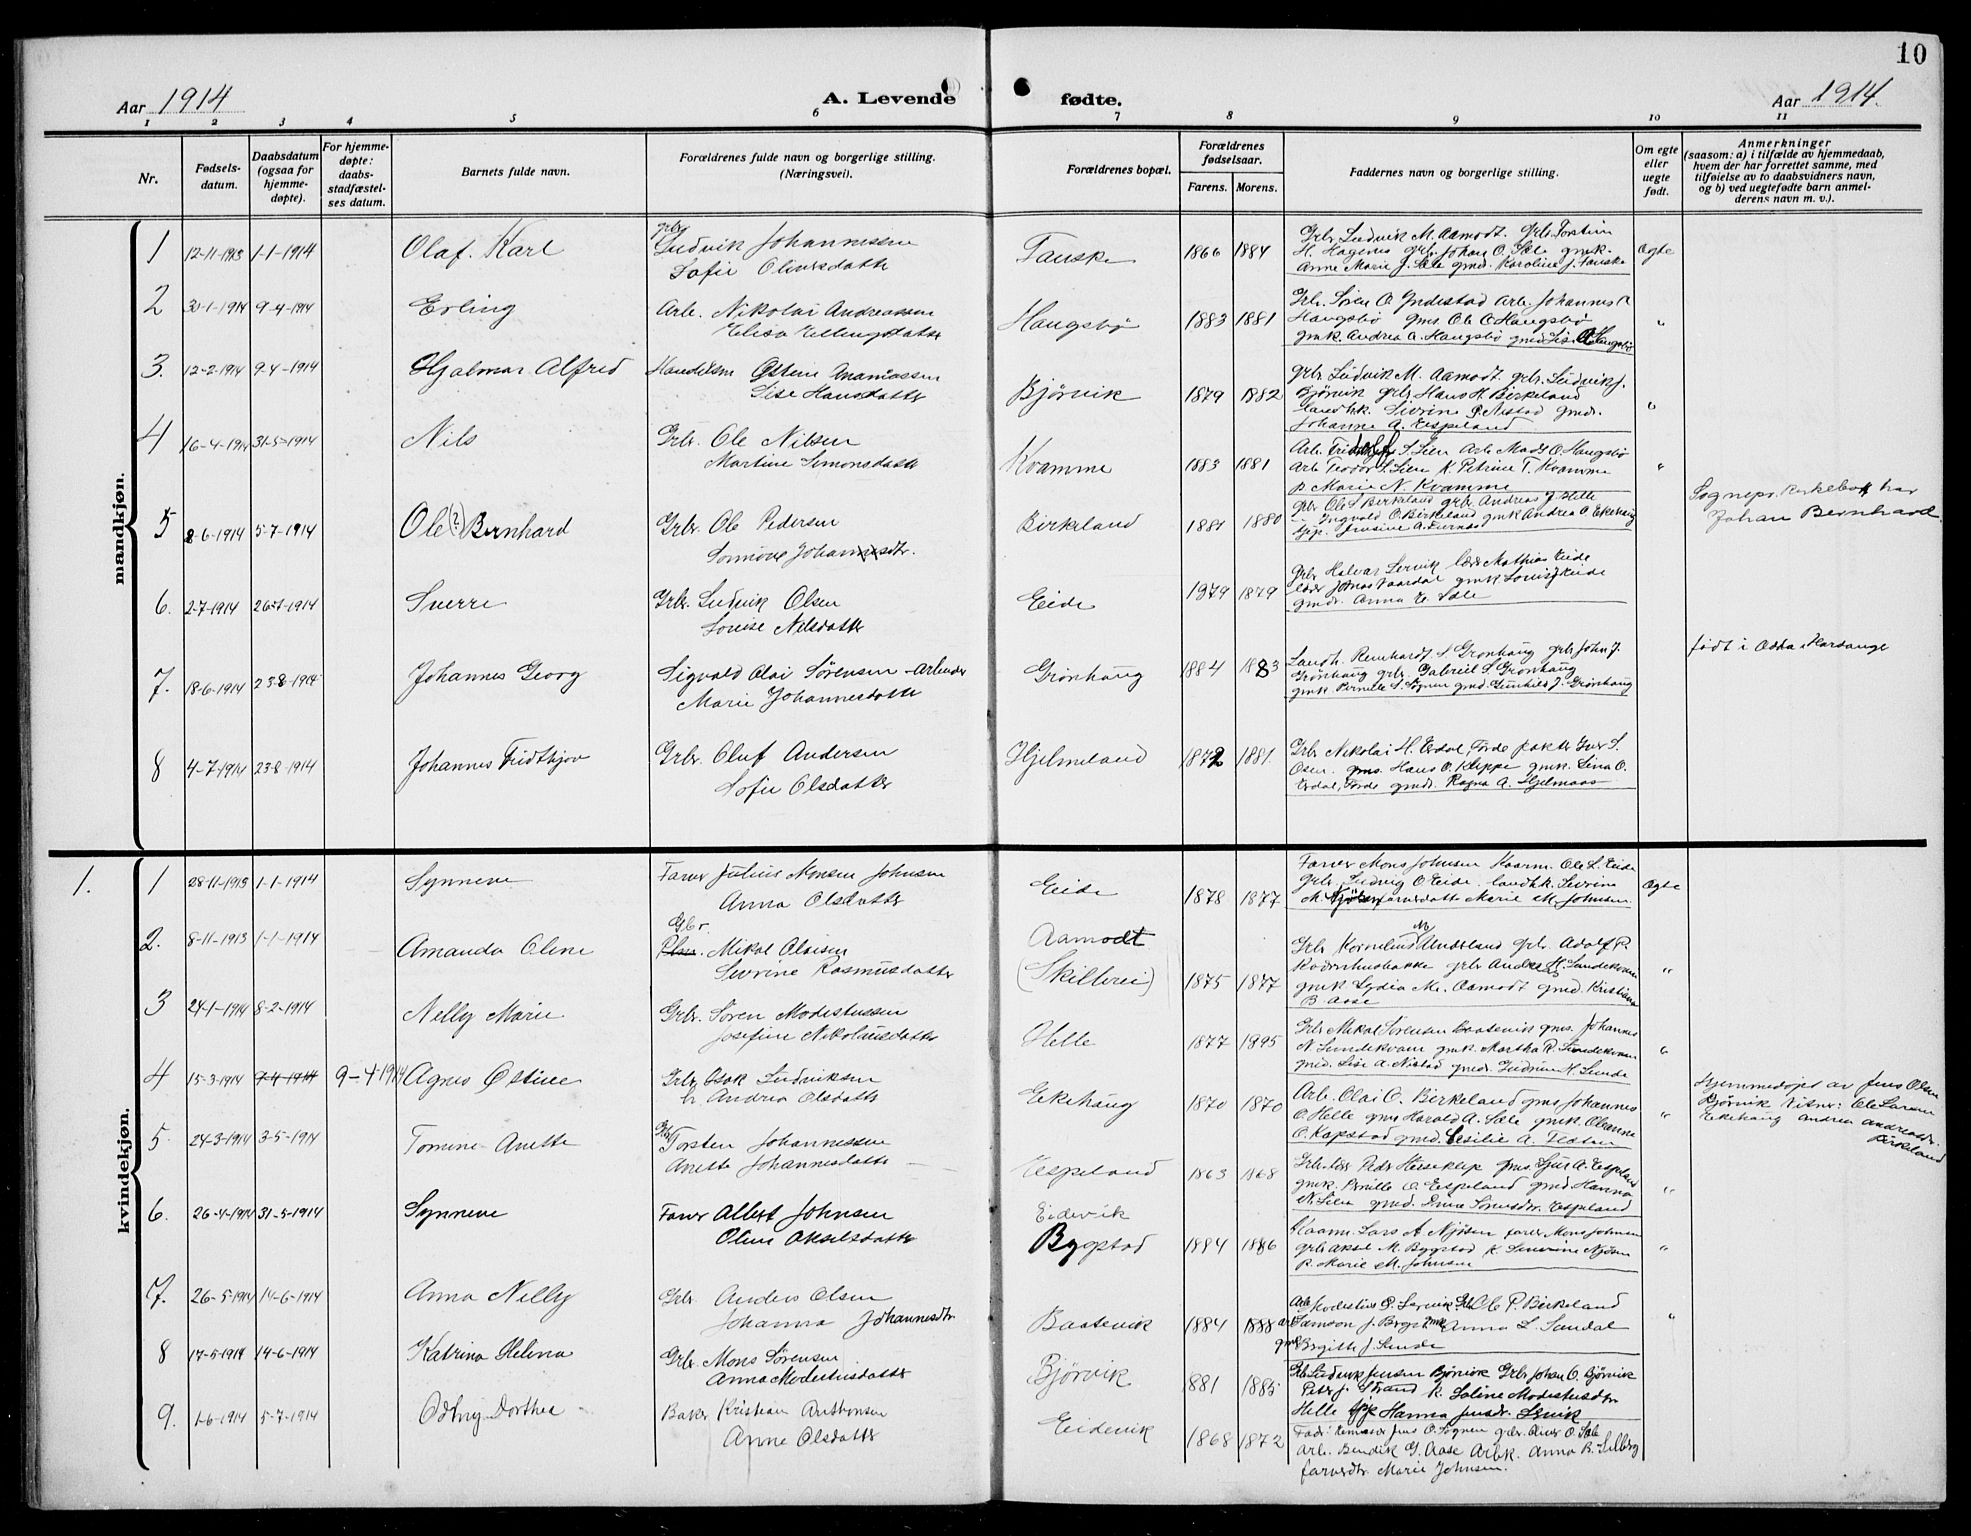 10
Aar 1914
A. Levende fødte.
Aar 1914.
1 2 3 4 5 6 7 8 9 10 11
Nr.
Fødsels-
datum.
Daabsdatum
(ogsaa for
hjemme-
døpte).
For hjemme-
døpte:
daabs-
stadfæstel-
ses datum.
Barnets fulde navn.
Forældrenes fulde navn og borgerlige stilling.
(Næringsvei).
Forældrenes bopæl.
Forældrenes
fødselsaar.
Farens. Morens.
Faddernes navn og borgerlige stilling.
Om egte
eller
uegte
født.
Anmerkninger
(saasom: a) i tilfælde av hjemmedaab,
hvem der har forrettet samme, med
tilføielse av to daabsvidners navn,
og b) ved uegtefødte barn anmel-
derens navn m. v.).
mandkjøn.
1 12-11-1913 1-1-1914 Olaf. Karl Grbr Ludvik Johannessen
Sofie Oliversdatter
Fauske 1866 1884
Grbr Ludvik M. Aamodt. Grbr Torstin
H. Hagenes grbr Johan O. Sæle gmk.
Anne Marie J. Sæle gmd. Karoline J. Fauske
Ægte
2 30-1-1914 9-4-1914 Erling Arb. Nikolai Andreassen
Elisa Ellingsdatter
Haugsbø 1883 1881
Grbr. Søren O Yndestad Arb. Johannes
Haugsbø gms Ole O Haugsbø
gmk. Andrea A. Haugsbø gmd. Lise Haugsbø
"
3. 12-2-1914 9-4-1914 Hjalmar Alfred Handelsm Østen Ananiassen
Lise Hansdatter
Bjørvik 1879 1882
Grbr Ludvik M. Aamodt. grbr. Ludvik J.
Bjørvik grbr Hans H. Birkeland
landhk. Sivrine P. Nistad gmd.
Johanne A. Espeland
"
4 16-4-1914 31-5-1914 Nils Grbr. Ole Nilsen
Martine Simonsdatter
Kvamme 1883 1881
Arb. S. Lien Arb Mads O Haugsbø
Arb Teodor S. Lien K. Petrine T. Kvamme
p Marie N. Kvamme
"
5 8-6-1914 5-7-1914 Ole (?) Bernhard Grbr. Ole Pedersen
Sønnøve Johannesdtr.
Birkeland 1881 1880
Grbr Ole S Birkeland grbr Andreas J. Helle
Ingvald O. Birkeland gmk Andrea O. Ekehaug
Sognepr. Kirkebok har
Johan Bernhard.
6. 2-7-1914 26-7-1914 Sverre Grbr. Ludvik Olsen
Louise Nilsdatter
Eide 1979 1879
Grbr Halvar Lervik lærer Mathias Eide
gmk Louise J Eide
gmd. Anna E. Sæle
7. 18-6-1914 23-8-1914 Johannes Georg Sigvald Olai Sørensen - Arbeider
Marie Johannesdatter
Grønhaug 1884 1883
Landh. Reinhardt S Grønhaug grbr John J.
Grønhaug grbr Gabriel S Grønhaug
gmk. Pernille S. Sognen gmd. Gunhild J. Grønhaug
født i Odda i Hardanger
8 4-7-1914 23-8-1914 Johannes Fridthjov Grbr. Oluf Andersen
Sofie Olsdatter
Hjelmeland 1872 1881.
Grbr Nikolai H. Erdal, Førde Iver S.
Osen. gms. Hans O. Kleppe gmk. Lina O.
Erdal, Førde gmd. Ragna A. Hjelmaas
kvindekjøn.
1. 1 28-11-1913 1-1-1914 Synneve Farver Julius Monsen Johnsen
Anna Olsdatter
Eide 1878 1877
Farver Mons Johnsen Kaarm. Ole L. Eide
Grbr Ludvig O. Eide. landhk. Sevrine
M. farverdatter Marie M. Johnsen.
Ægte
2. 8-11-1913 1-1-1914 Amanda Oline Gbr. Mikal Olaisen
Sevrine Rasmusdatter
Aamodt
(Skilbrei) 1875 1877
Grbr Kornelius grbr. Adolf R.
grbr Andreas H. Sundekvam
gmk Lydia M. Aamodt gmd. Kristiane
B Aase
"
3 24-1-1914 8-2-1914 Nelly Marie Grbr. Søren Modestussen
Josefine Nikolausdatter
Helle 1877 1895
Grbr Mikal Sørensen Baatevik gms. Johannes
N. Sundekvam gmk. Martha R. Sundekvam
gmd. Lise A. Nistad gmd. Gudrun H. Sunde
"
4 15-3-1914 9-4-1914 9-4 1914 Agnes Østine Grbr. Isak Ludviksen
h. Andrea Olsdatter
Ekehaug 1870 1870
Arb. Olai O. Birkeland gms Johannes
O Helle gms Harald A. Sæle gmk. Oleanne
O. Kapstad gmd. Cesilie A.
"
Hjemmedøpt av Jens Olsen
Bjørvik Vitner: Ole Larsen
Ekehaug Andrea Andreasdtr.
Birkeland
5. 24-3-1914 3-5-1914 Tomine Anette Grbr Torsten Johannessen
Anette Johannesdatter
Espeland 1863 1868
Grbr Peder gms. Sjur A. Espeland
gmk. Pernille O. Espeland gmd Hanna
N. Lien gmd. Espeland
"
6. 26-4-1914 31-5-1914 Synneve Farver Albert Johnsen
Oline Akselsdatter
Eidevik
Bygstad 1884 1886
Kaarm. Lars A. Njøsen farver Mons Johnsen
grbr Aksel M. Bygstad K. Severine Njøsen
P. Marie M. Johnsen
"
7. 26-5-1914 14-6-1914 Anna Nelly Grbr. Anders Olsen
Johanna Johannesdtr
Baatevik 1884 1888
Arb Modestus P. Lervik Grbr Ole P. Birkeland
Samson J. Bygst gmk Anna L. Sandal
gmd Birgitte J. Sunde
"
8 17-5-1914 14-6-1914 Katrina Helena Grbr. Mons Sørensen
Anna Modestusdatter
Bjørvik 881 1885
Gb Ludvik Jensen Bjørvik Grbr Johan O. Bjørvik
Peter J. Strand K Saline Modestusdtr
Helle Hanna Jensdr. Lervik
9. 1-6-1914 5-7-1914 Odbny Dorthea Baker Kristian Anthonsen
Anne Olsdatter
Eidevik 1868 1872
Jens O. Sognen grbr. Oliver O. Sæle
Arb. Bendik G. Aase Arbk. Anna B. Selberg
farverdtr. Marie Johnsen.